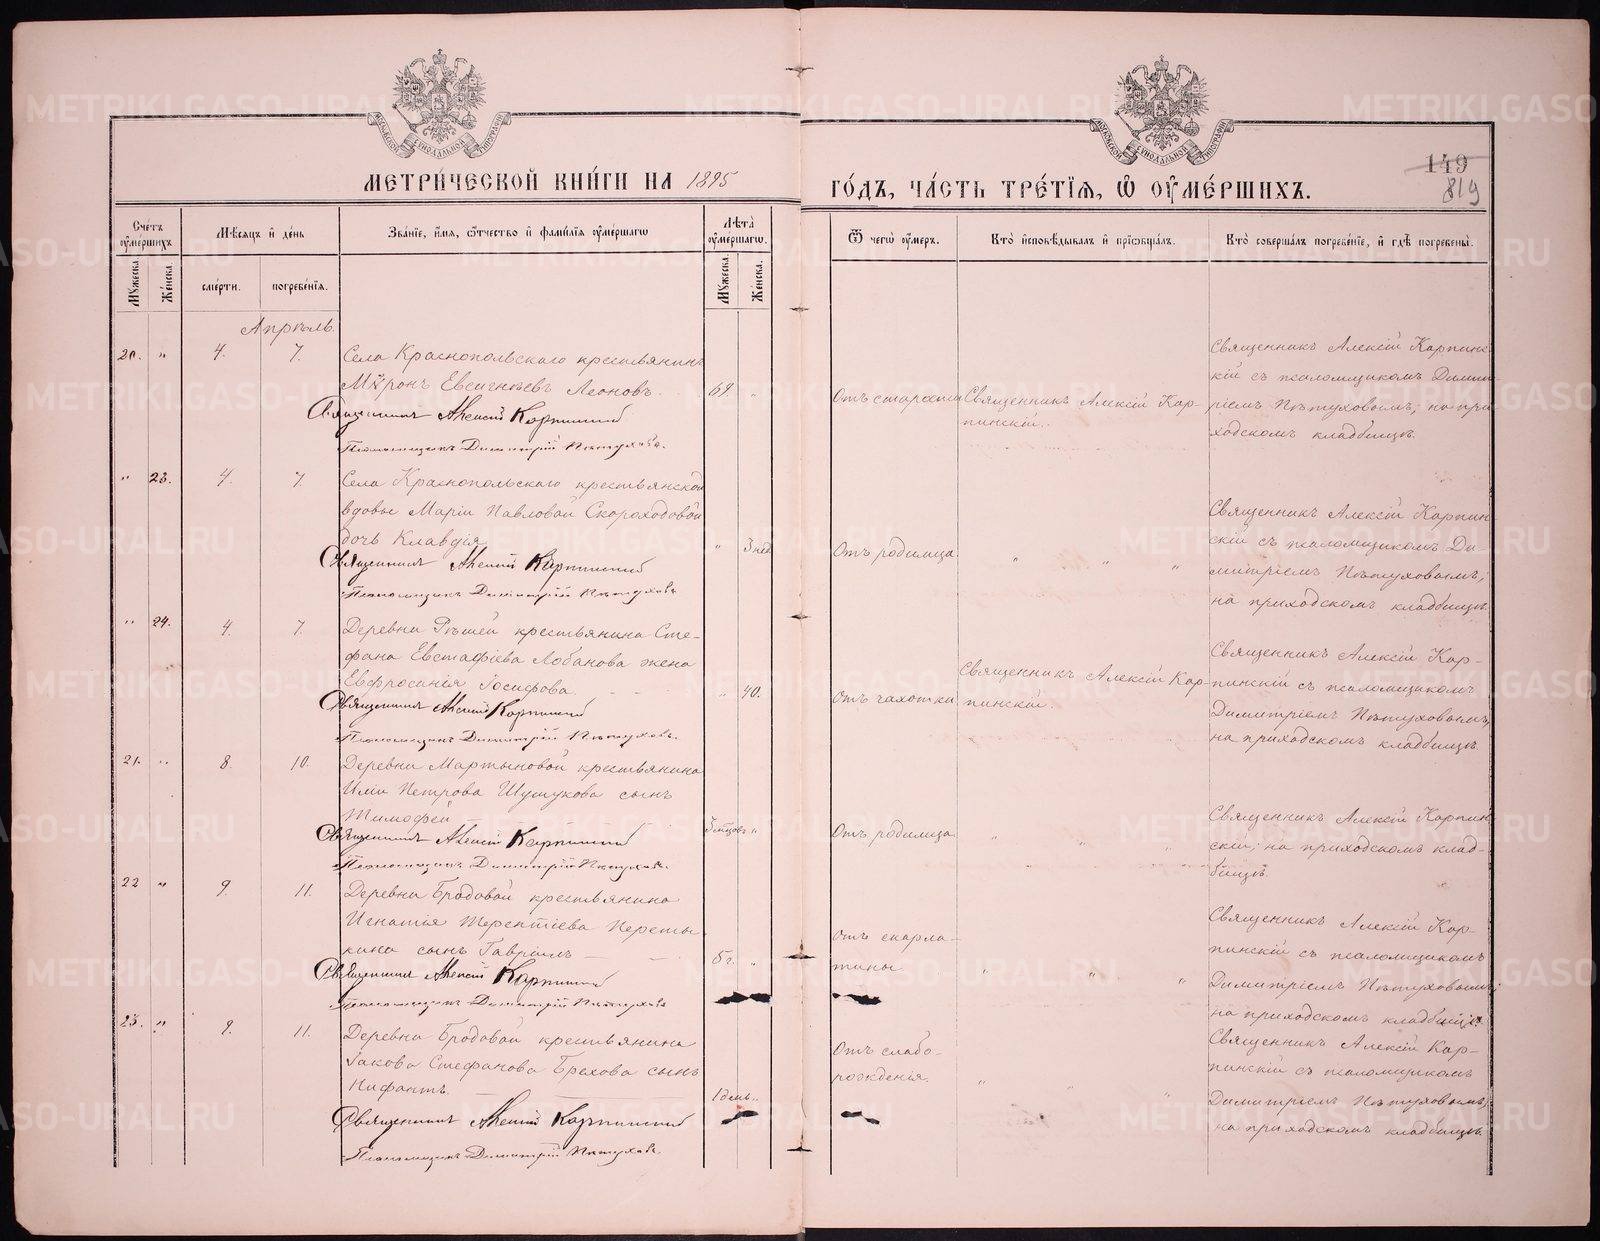 МЕТРИЧЕСКОЙ КНИГИ НА 1895
ГОДЪ, ЧАСТЬ ТРЕТІЯ, Ѿ ОУМЕРШИХЪ.
149
819
Счетъ оумершихъ.
Мѣсяцъ и день
Званіе, имя, ѿчество и фамилія оумершагѡ
Лѣта оумершагѡ.
Ѿ чегѡ оумеръ.
Кто исповѣдывалъ и пріобщалъ.
Кто совершалъ погребеніе, и гдѣ погребены.
Мужеска.
Женска.
смерти.
погребенія.
Мужеска.
Женска.
Апрѣль.
20. " 4. 7.
Села Краснопольскаго крестьянинъ
Мѵронъ Евсигнѣевъ Леоновъ.
69. "
Отъ старости
Священникъ Алексій Кар-
пинскій.
Священникъ Алексій Карпинс-
кій съ псаломщикомъ Димит-
ріемъ Пѣтуховымъ; на при-
ходскомъ кладбищѣ.
Священникъ Алексій Карпинскій
Псаломщикъ Димитрій Пѣтуховъ.
" 23. 4. 7.
Села Краснопольскаго крестьянской
вдовы Маріи Павловой Скороходовой
дочь Клавдія
" 3 нед.
Отъ родимца.
" " "
Священникъ Алексій Карпин-
скій съ псаломщикомъ Ди-
митріемъ Пѣтуховымъ;
на приходскомъ кладбищѣ.
Священникъ Алексій Карпинскій
Псаломщикъ Димитрій Пѣтуховъ
" 24. 4. 7.
Деревни Рѣшей крестьянина Сте-
фана Евстафіева Лобанова жена
Евфросинія Іосифова.
" 40.
Отъ чахотки
Священникъ Алексій Кар-
пинскій.
Священникъ Алексій Кар-
пинскій съ псаломщикомъ
Димитріемъ Пѣтуховымъ;
на приходскомъ кладбищѣ.
Священникъ Алексій Карпинскій
Псаломщикъ Димитрій Пѣтуховъ.
21. " 8. 10.
Деревни Мартыновой крестьянина
Петрова сынъ
Тимофей
"
Отъ родимца
" "
Священникъ Алексій Карпин-
скій; на приходскомъ клад-
бищѣ.
Священникъ Алексій Карпинскій
Псаломщикъ Димитрій Пѣтуховъ.
22 " 9. 11.
Деревни Бродовой крестьянина
Игнатія Терентіева Переты-
кина сынъ Гавріилъ
"
Отъ скарла-
тины
" " "
Священникъ Алексій Кар-
пинскій съ псаломщикомъ
Димитріемъ Пѣтуховымъ;
на приходскомъ кладбищѣ.
Священникъ Алексій Карпинскій
Псаломщикъ Димитрій Пѣтуховъ
23. " 9. 11.
Деревни Бродовой крестьянина
Іакова Стефанова Брехова сынъ
Нифантъ.
1 день "
Отъ слабо-
рожденія.
" " "
Священникъ Алексій Кар-
пинскій съ псаломщикомъ
Димитріемъ Пѣтуховымъ;
на приходскомъ кладбищѣ.
Священникъ Алексій Карпинскій
Псаломщикъ Димитрій Пѣтуховъ.
METRIKI.GASO-URAL.RU